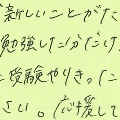 新しいことがた
勉強したこかだけ
に受験やりきった
さい。応援して